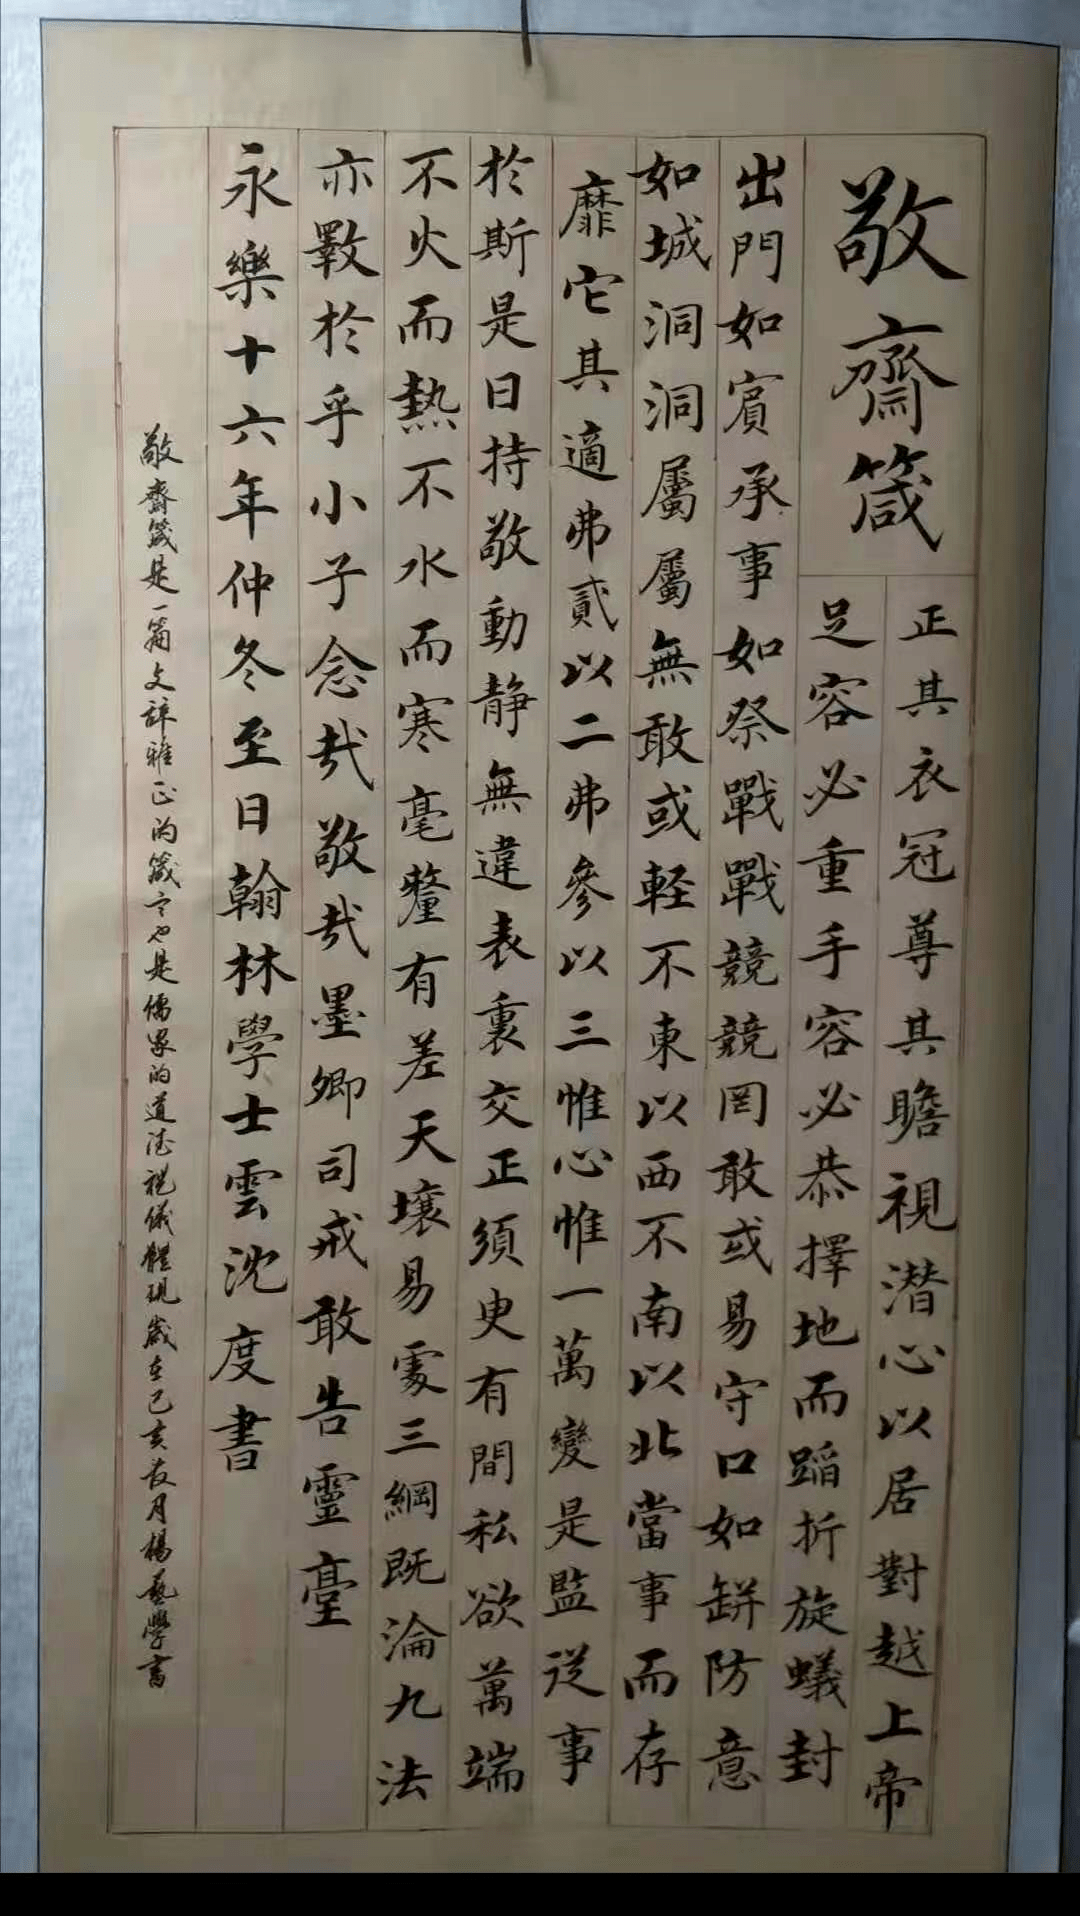 敬齋箴
正其衣冠尊其瞻視潜心以居對越上帝
足容必重手容必恭擇地而蹈折旋蟻封
出門如賔承事如祭戰戰競競罔敢或易守口如缾防意
如城洞洞屬屬無敢或軽不東以西不南以北當事而存
靡它其適弗貳以二弗參以三惟心惟一萬變是監従事
於斯是日持敬動静無違表裏交正須臾有間私欲萬端
不火而熱不水而寒毫釐有差天壤易處三綱既淪九法
亦斁於乎小子念哉敬哉墨卿司戒敢告靈臺
永樂十六年仲冬至日翰林學士雲沈度書
敬齋箴是一篇文辞雅正的箴言也是儒家的道德礼儀體現歲在己亥 月楊藝學書